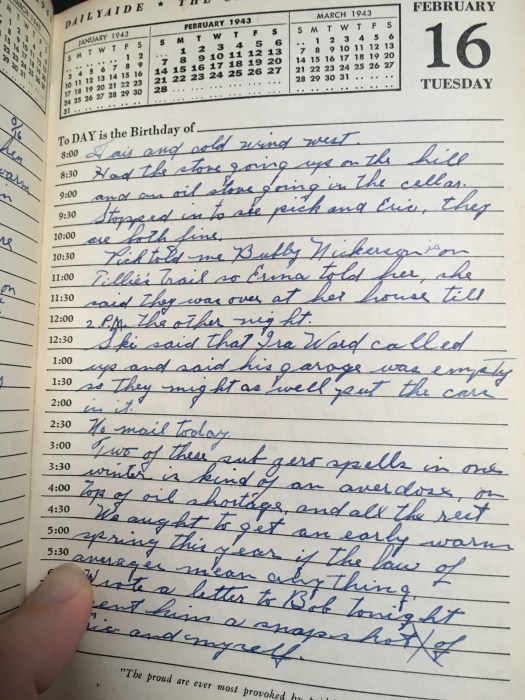 DAILYAIDE ★ THE
JANUARY 1943
S M T W T F S
1 2
3 4 5 6 7 8 9
10 11 12 13 14 15 16
17 18 19 20 21 22 23
24 25 26 27 28 29 30
31
FEBRUARY 1943
S M T W T F S
1 2 3 4 5 6
7 8 9 10 11 12 13
14 15 16 17 18 19 20
21 22 23 24 25 26 27
28
MARCH 1943
S M T W T F S
1 2 3 4 5 6
7 8 9 10 11 12 13
14 15 16 17 18 19 20
21 22 23 24 25 26 27
28 29 30 31
FEBRUARY
16
TUESDAY
To DAY is the Birthday of
8:00 Fair and cold wind west.
8:30 Had the stove going up on the hill
9:00 and an oil stove going in the cellar.
9:30 Stopped in to see pick and Eric, they
10:00 are both fine.
10:30 Pick told me Bubby Nickerson is on
11:00 Tillie's Trail so Erma told her, she
11:30 said they was over at her house till
12:00 2 P.M. the other night.
12:30 Ski said that Ira Ward called
1:00 up and said his garage was empty
1:30 so they might as well put the cars
2:00 in it.
2:30 No mail today.
3:00 Two of these sub zero spells in one
3:30 winter is kind of an overdose, on
4:00 top of oil shortage, and all the rest
4:30 We aught to get an early warm
5:00 spring this year if the law of
5:30 averages mean anything.
Wrote a letter to Bob tonight
sent him a snapshot of
and myself.
"The proud are ever most provoked by